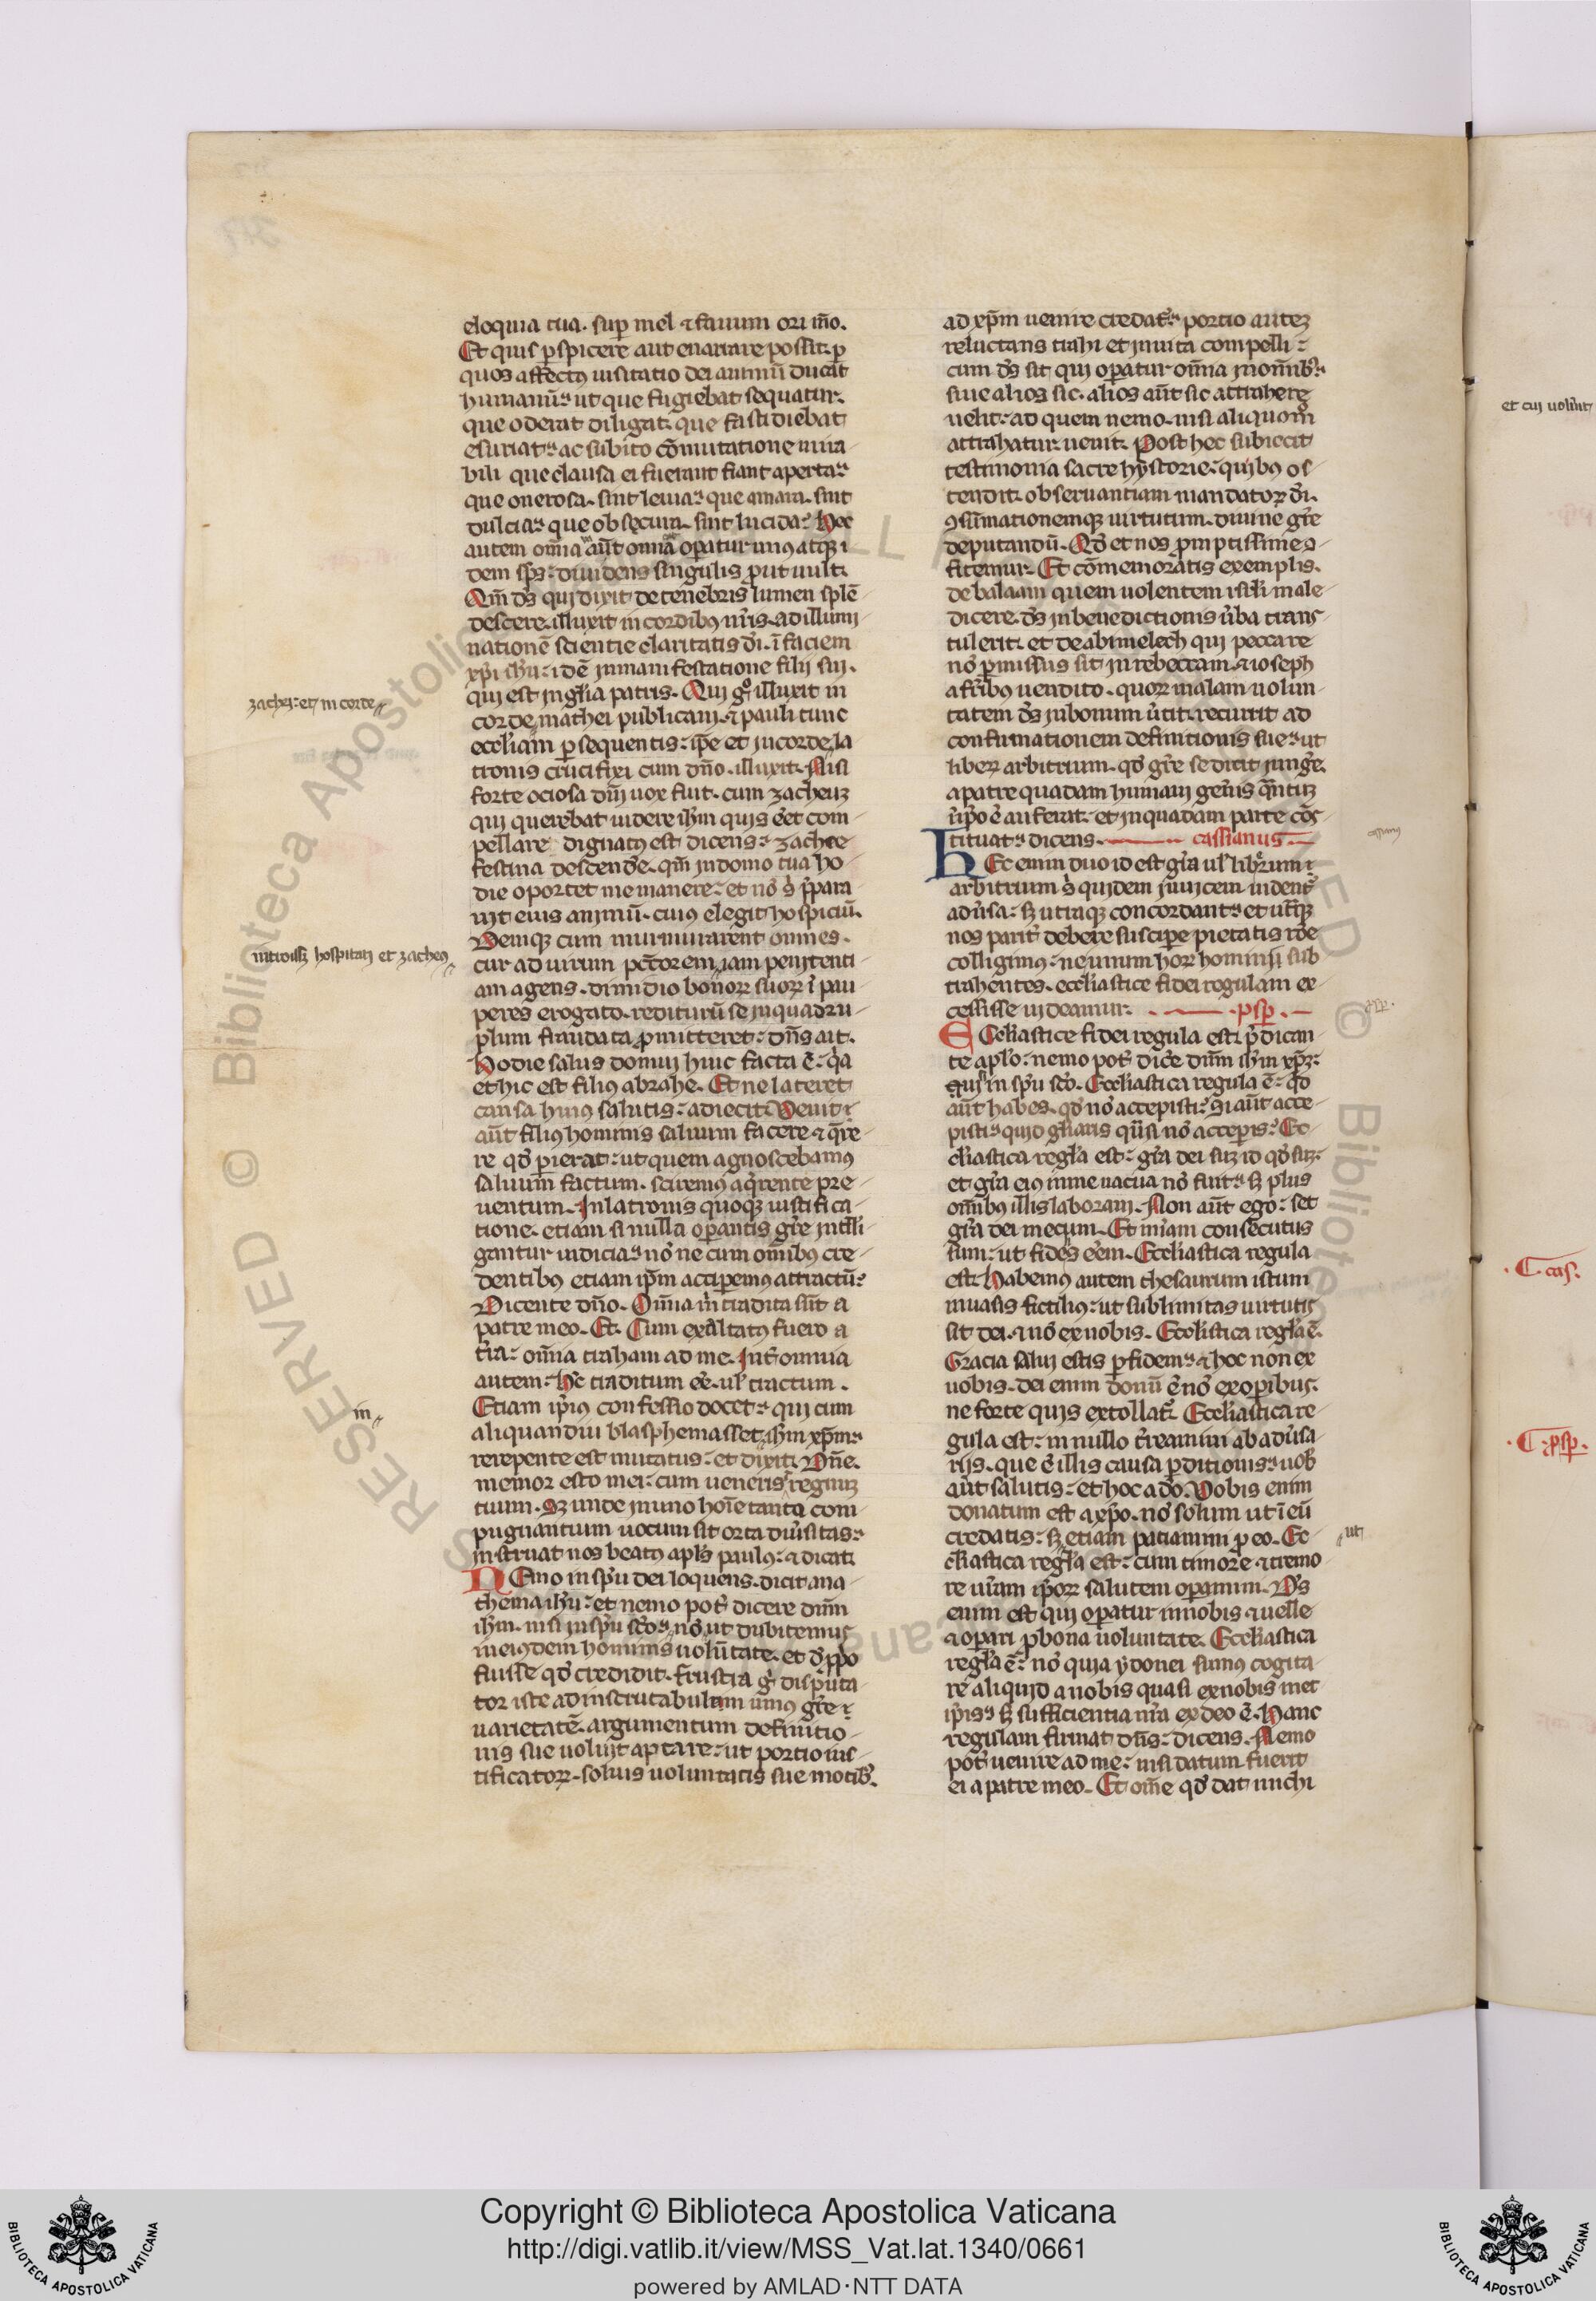 eloquia tua. sup̱ mel ⁊ fauum ori m̅o.
Et quis ꝑspicere aut enarrare possit. ꝑ
quos affectꝰ uisitatio dei animū ducat
humanū. ut que fugiebat sequatur.
que oderat diligat. que fastidiebat
esuriat. ac subito cōmutatione mira-
bili que clausa ei fuerant fiant aperta.
que onerosa. sint leuia. que amara. sint
dulcia. que obscura. sint lucida. Hec
autem om̅ia aūt omnia oꝑatur unꝰ atqꝫ i
dem sp̅s. diuidens singulis ꝓut uult.
Qm̅ ds̅ qui dixit de tenebris lumen splē-
descere. illuxit in cordibꝰ nr̅is. ad illumi-
nationē scientie claritatis dı̅. ī faciem
xp̅i ih̅u. idē in manifestatione filii sui.
qui est in gl̅ia patris. Qui gͦ illuxit in
corde mathei publicani. ⁊ pauli tunc
eccl̅iam ꝑsequentis. ip̅e et in corde la
tronis crucifixi cum dn̅o. illuxit. Nisi
forte ociosa dn̅i uox fuit. cum zacheuꝫ
qui querebat uidere ih̅m quis eēt com-
pellare dignatꝰ est dicens. zachee
festina descende. qm̅ in domo tua ho-
die oportet me manere. et nō s̉ p̅para
uit eius animū. cuiꝰ elegit hospiciū.
Deniqꝫ cum murmurarent omnes.
cur ad uirum pc̅torem iam penitenti-
am agens. dimidio bonoꝝ suoꝝ ī pau-
peres erogato. rediturū se in quadru-
plum fraudata ꝓmitteret. dn̅s ait.
Hodie salus domui huic facta ē. qͥa
et hic est filiꝰ abrahe. Et ne lateret
causa huiꝰ salutis. adiecit. Venit
aūt filiꝰ hominis saluum facere ⁊ q̅re-
re qd̅ ꝑierat. ut quem agnoscebamꝰ
saluum factum. sciremꝰ a q̅rente pre-
uentum. In latronis quoqꝫ iustifica-
tione. etiam si nulla oꝑantis gr̅e intll̅i-
gantur indicia. nōne cum om̅ibꝰ cre-
dentibꝰ etiam ip̅m accipemꝰ attractū.
Dicente dn̅o. Om̅ia m̉ tradita sūt a
patre meo. Et. Cum exaltatꝰ fuero a
t̉ra. om̅ia traham ad me. Int̉ omnia
autem. hec traditum eē. ul̅ tractum.
Etiam ip̅iꝰ confessio docet. qui cum
aliquandiu blasphemasset ih̅m xp̅m.
rerepente est mutatus. et dixit. Dn̅e.
memor esto mei. cum ueneris regnuꝫ
tuum. Sꝫ unde in uno hoīe tanta com
pugnantium uocum sit orta diủsitas.
instruat nos beatꝰ apl̅s paulꝰ. ⁊ dicat.
NEmo in sp̅u dei loquens. dicit ana-
thema ih̅u. et nemo pot̉ dicere dn̅m
ih̅m. nisi in sp̅u sc̅o. nō ut dubitemus
in eiusdem hominis uolūtate. et
fuisse qd̅ credidit. frustra g̉ disputa-
tor iste ad inscrutabilem unꝰ gr̅e
uarietatē. argumentum definitio-
nis sue uoluit aptare. ut portio ius-
tificatoꝝ. soluis uoluntatis sue motibꝰ.
zachei. et in corde
introisset hospitari et zacheꝰ
in
ad xp̅m uenire credat̉. portio auteꝫ
reluctans trahi et inuita compelli.
cum ds̅ sit qui oꝑatur om̅ia in om̅ibꝰ.
siue alios sic. alios aūt sic attrahere
uelit. ad quem nemo. nisi aliquo m̅
attrahatur. uenit. Post hec subiecit
testimonia sacre hystorie. quibꝰ os-
tendit. obseruantiam mandatoꝝ dı̅.
ꝯsūmationemqꝫ uirtutum. diuine gr̅e
deputandū. Qd̅ et nos ꝓmptissime ꝯ-
fitemur. Et cōmemoratis exemplis.
de balaam quem uolentem isrl̅i male-
dicere. ds̅ in benedictionis ủba trans-
tulerit. et de abimelech qui peccare
nō ꝑmissus sit in rebeccam. ⁊ ioseph
a fr̅ibꝰ uendito. quoꝝ malam uolun-
tatem ds̅ in bonum ủtit. recurrit ad
confirmationem definitionis sue. ut
liberꝝ arbitrium. qd̅ gr̅e se dicit iunge̅.
a parte quadam humani gen̉is
ip̅o ē auferat. et in quadam parte cōs-
tituat. dicens. cassianus.
HEc enim duo id est gr̅a ul̅ liberum
arbitrium s̉ quidem inuicem uident̉
adủsa. sꝫ utraqꝫ concordant. et utrūqꝫ
nos parit̉ debere suscipe pietatis rōe
colligimꝰ. ne unum hoꝝ homini sub-
trahentes. eccl̅iastice fidei regulam ex-
cessisse uideamur. .psp̅.
ECcl̅iastice fidei regula est. p̅dican-
te aplo̅. nemo pot̉ dice̅ dn̅m ih̅m xp̅ꝫ.
in sp̅u sc̅o. Eccl̅iastica regula ē. qͥd
aūt habes. qd̅ nō accepisti. Si aūt acce-
pisti. quid gl̅iaris q̅si nō acceꝑis. Ec-
cl̅iastica regl̅a est. gr̅a dei suꝫ id qd̅ suꝫ.
et gr̅a eiꝰ in me uacua nō fuit. sꝫ plus
om̅ibꝰ illis laboraui. Non aūt ego. set
gr̅a dei mecum. Et mi̅am consecutus
sum. ut fidel̅ eēm. Eccl̅iastica regula
est. Habemꝰ autem thesaurum istum
in uasis fictilibꝰ. ut sublimitas uirtutis
sit dei. ⁊ nō ex nobis. Eccl̅istica regl̅a ē.
Gracia salui estis ꝑ fidem. ⁊ hoc non ex
uobis. dei enim donū ē. nō ex oꝑibus.
ne forte quis extollat̉. Eccl̅iastica re-
gula est. in nullo t̉reamini ab adủsa-
riis. que ē illis causa ꝑditionis. uob̅
aūt salutis. et hoc a do̅. Vobis enim
donatum est a xp̅o. nō solum ut ī eū
credatis. sꝫ etiam patiamini ꝑ eo. Ec-
cl̅iastica regl̅a est. cum timore ⁊ tremo-
re ur̅am ip̅oꝝ salutem oꝑamini. Ds̅
enim est qui oꝑatur in nobis ⁊ uelle
⁊ oꝑari ꝓ bona uoluntate. Eccl̅iastica
regl̅a ē. nō quia ydonei sumꝰ cogita-
re aliquid a nobis quasi ex nobis met
ip̅is. sꝫ sufficientia nr̅a ex deo ē. Hanc
regulam firmat dn̅s. dicens. Nemo
pot̉ uenire ad me. nisi datum fuerit
ei a patre meo. Et om̅e qd̅ dat michi
ut
et cui uolu̅nt
C cas̅.
C psp̅.
Copyright © Biblioteca Apostolica Vaticana
http://digi.vatlib.it/view/MSS_Vat.lat.1340/0661
powered by AMLAD·NTT DATA
BIBLIOTECA APOSTOLICA VATICANA
BIBLIOTECA APOSTOLICA VATICANA